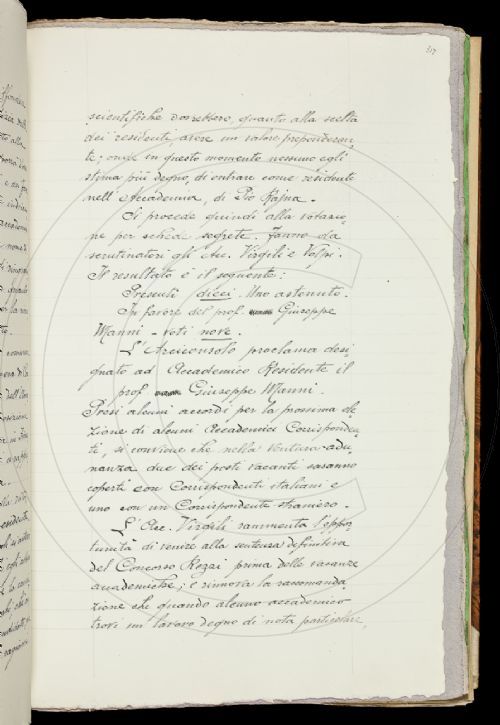 317
scientifiche dovrebbero, quanto alla scelta
dei residenti, avere un valore preponderan-
te; onde in questo momento nessuno egli
stima più degno, di entrare come residente
nell'Accademia, di Pio Rajna.
Si procede quindi alla votazio-
ne per schede segrete. Fanno da
scrutinatori gli Acc. Virgili e Volpi.
Il resultato è il seguente:
Presenti dieci. Uno astenuto.
In favore del prof. Giuseppe
Manni - voti nove.
L'Arciconsolo proclama desi-
gnato ad Accademico Residente il
prof. Giuseppe Manni.
Presi alcuni accordi per la prossima ele-
zione di alcuni Accademici Corrisponden-
ti, si conviene che nella ventura adu-
nanza due dei posti vacanti saranno
coperti con Corrispondenti italiani e
uno con un Corrispondente straniero.
L'Acc. Virgili rammenta l'oppor-
tunità di venire alla sentenza definitiva
del Concorso Rezzi prima delle vacanze
accademiche; e rinnova la raccomanda-
zione che quando alcuno accademico
trovi un lavoro degno di nota particolare,